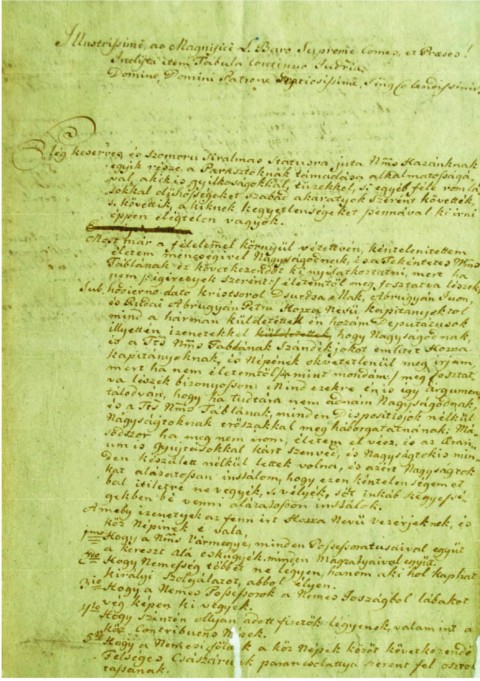 Illustrissime, ac Magnifice L. Baro Supreme Comes, et Præses!
Inclyta item Tabula Continua Judria
Domine, Domini Patrone Gratiosissime,
Elég keserves és szomorú siralmas Statusra juta Nms Hazánknak
egyik része, a Parasztoknak támadása alkalmatosságá
val, akik is gyilkosságokkal, tüzekkel, s egyéb féle romlá
sokkal dühösségeket szabad akaratyok szerent követték,
s követtik, a kiknek kegyetlenségeket pennával ki irni
éppen elégtelen vagyok.
Most már a félelemmel környül vétettvén, kéntelenittem
életem menségivel Nagyságodnek, és a Tekéntetes Nms
Táblának ez következendőt ki nyilatkoztatni, mert ha
nem végirëgyek szerént életemtől meg fosztatva lészek,
Sub hosierno dato Kristsorol Dsurdsa Mak, Abrugyán Juon,
és Butsai Abrugyán Petru Hozza Nevü Kapitányoktol
mind a hárman küldettettek én hozám Deputatusok
illyetén izenetekkel, hogy Nagyságodnak,
és a Tts Nms Táblának Szándékjokot emlitet Hozza
Kapitányoknak, és Népének okvetetlenül meg irjam,
mert ha nem életemtől /: a mint mondám :/ meg fosztat
va lészek bizonyoson: Mind ezekre én is egy argumen
talodván, hogy ha tudtára nem adnám Nagyságodnak,
és a Tts Nms Táblának, minden Dispositiojok nélkül
Nagyságtoknak erőszakkal meg háborgatatnának: Má
sodszor ha meg nem irom, életem el vész, és az Arán
um is gyujtásokkal kárt szenved, és Nagyságtokis min
den készület nélkül lettek volna, és azért Nagyságtok
kat alázatossan instalom, hogy ezen kéntelenségemet
bal itéletre ne vegyék, s véljék, sőt inkáb kegyessé
gekben bé venni alázatosson instálok.
A mely izenetyek az fenn irt Hozza Nevü vezérjeknek, és
köz Népinek e vala.
1mo Hogy a Nms Vármegye, minden Possessoratusaival együtt
a kereszt alá esküdjék minden Magzatyaival együtt.
2do Hogy Nemesség többet ne légyen, hanem aki hol kaphat
királyi szolgálatot, abbol éllyen.
3tio Hogy a Nemes Possessorok a Nemes Joszágbol lábakot
vég képen ki vegyék.
4to Hogy szintén olyan adott fizetők légyenek, valamint a
köz Contribuens Nések.
5to Hogy a Nemesi földek a köz Népek között következendő
Felséges Császárunk parancsolattya szerent fel osztot
tassanak.